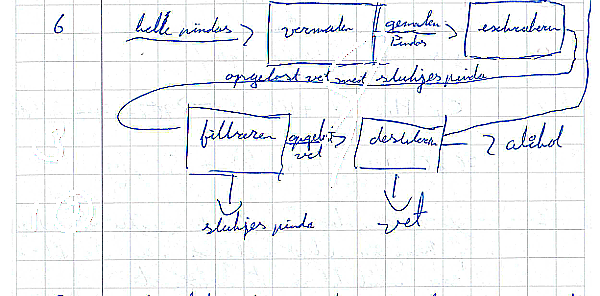 6 hele pindas vermalen gemalen Pindas extraheren
opgelost vet met stukjes pinda
filtreren opgelost vet destilleren alcohol
stukjes pinda vet